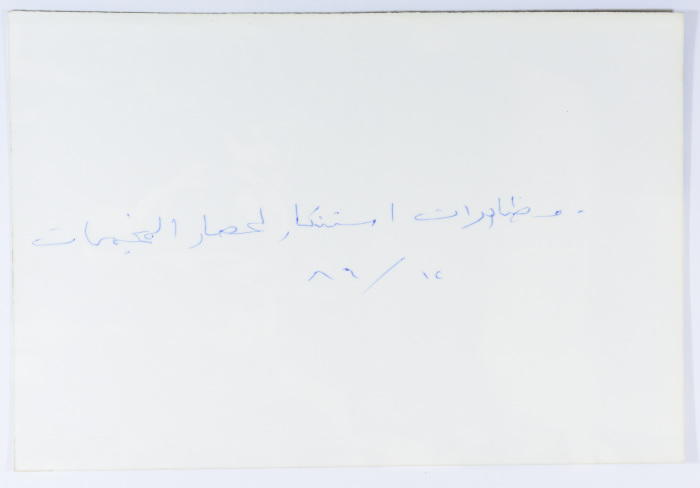 . مظاهرات استنكار لحصار المخيمات
١٢ / ٨٦